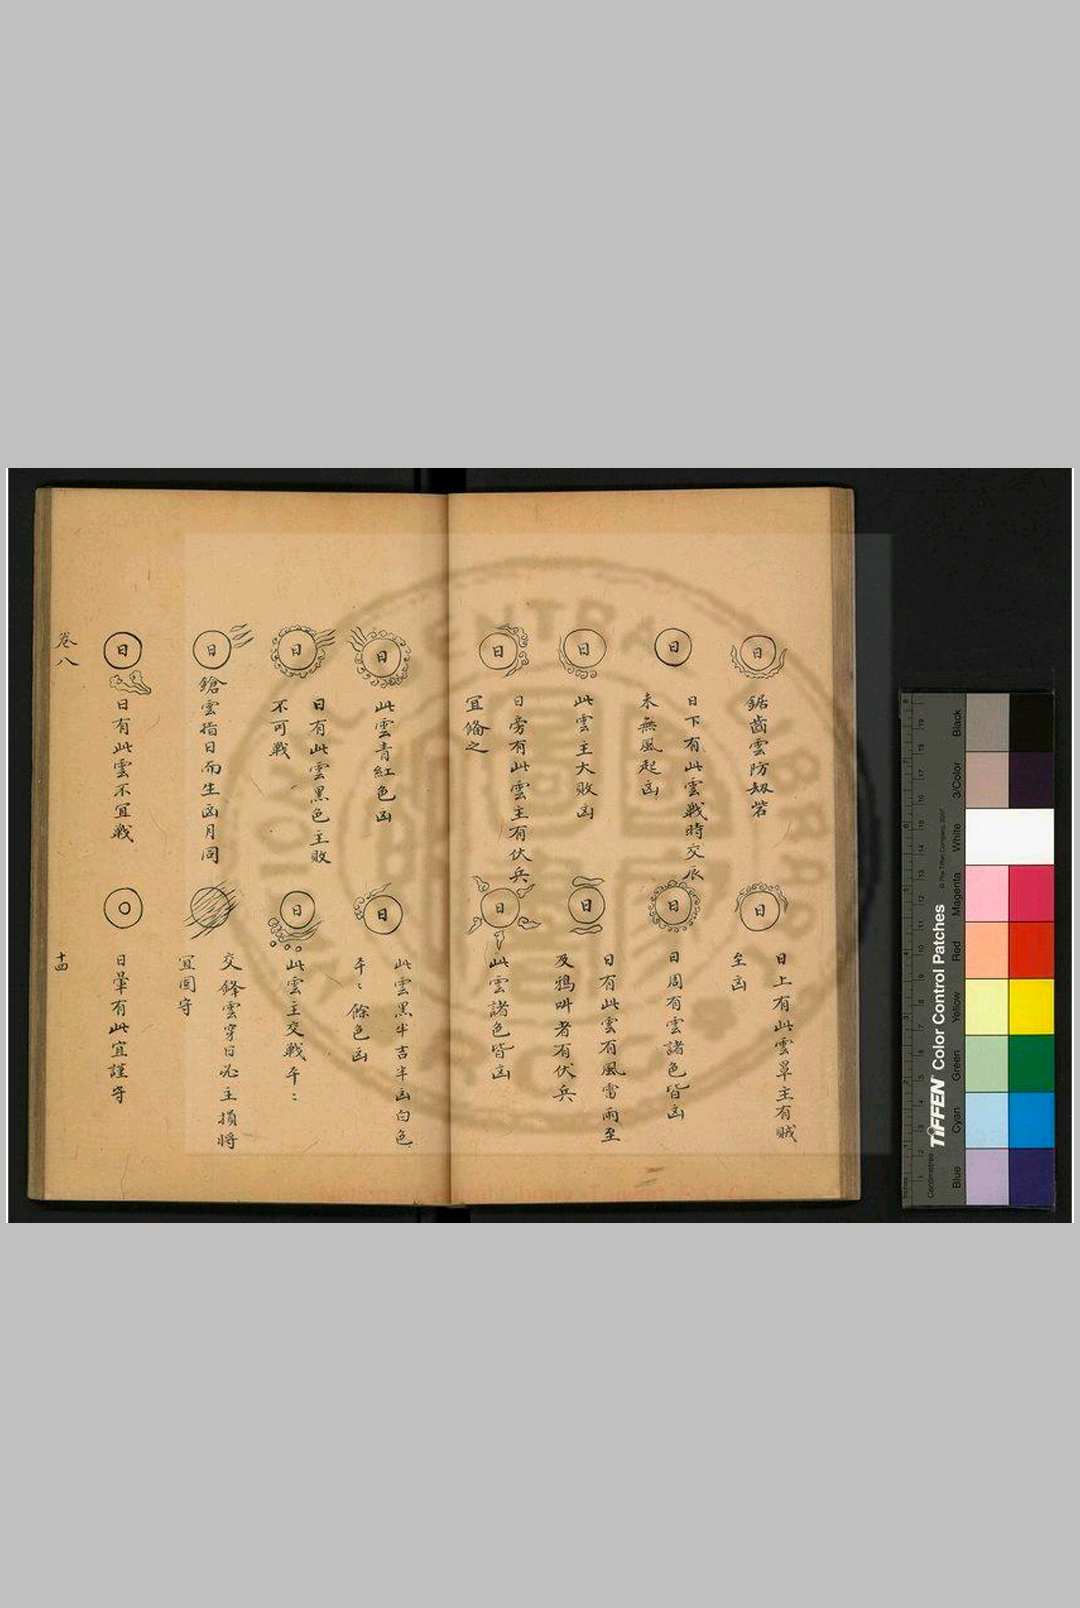 日
鋸齒雲防刼砦
日
日上有此雲單主有賊
至凶
日
日下有此雲戰時交辰
未無風起凶
日
日周有雲諸色皆凶
日
此雲主大敗凶
日
日有此雲有風雷雨至
及鴉叫者有伏兵
日
日旁有此雲主有伏兵
宜备之
日
此雲諸色皆凶
日
此雲青紅色凶
日
此雲黑半吉半凶白色
平〻餘色凶
日
日有此雲黑色主敗
不可戰
日
此雲主交戰平〻
日
鎗雲指日而生凶月同
交鋒雲穿日必主損將
宜固守
日
日有此雲不宜戰
日暈有此宜謹守
卷八
十四
TIFFEN Color Control Patches
© The Tiffen Company, 2007
Centimetres
Inches
Blue
Cyan
Green
Yellow
Red
Magenta
White
3/Color
Black